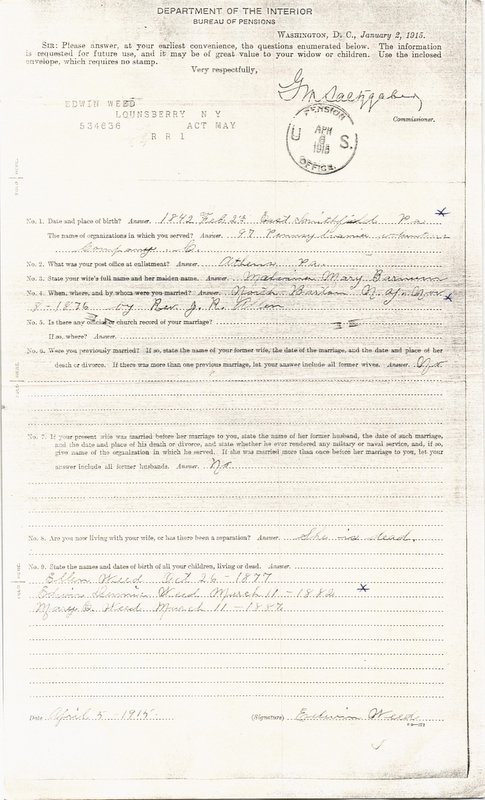 DEPARTMENT OF THE INTERIOR
BUREAU OF PENSIONS
WASHINGTON, D. C., January 2, 1915.
SIR: Please answer, at your earliest convenience, the questions enumerated below. The information
is requested for future use, and it may be of great value to your widow or children. Use the inclosed
envelope, which requires no stamp.
Very respectfully,
Commissioner.
EDWIN WEED
LOUNSBERRY N Y
534636 ACT MAY
R R 1
PENSION
U APR S.
1915
OFFICE.
No. 1. Date and place of birth? Answer. 1842 Feb. 24 East Smithfield Pa.
The name of organizations in which you served? Answer. 97 Pennsylvania
Company C.
No. 2. What was your post office at enlistment? Answer. Athens Pa.
No. 3. State your wife's full name and her maiden name. Answer. Mary
No. 4. When, where, and by whom were you married? Answer. North Barton N. Y. Nov
8 - 1876 by Rev. J. R.
No. 5. Is there any official or church record of your marriage?
If so, where? Answer.
No. 6. Were you previously married? If so, state the name of your former wife, the date of the marriage, and the date and place of her
death or divorce. If there was more than one previous marriage, let your answer include all former wives. Answer. No
No. 7. If your present wife was married before her marriage to you, state the name of her former husband, the date of such marriage,
and the date and place of his death or divorce, and state whether he ever rendered any military or naval service, and, if so,
give name of the organization in which he served. If she was married more than once before her marriage to you, let your
answer include all former husbands. Answer. No
No. 8. Are you now living with your wife, or has there been a separation? Answer. She is dead.
No. 9. State the names and dates of birth of all your children, living or dead. Answer.
Ellen Weed Oct 26 - 1877
Edwin Weed March 11 - 1882
Mary E. Weed March 11 - 1886
Date April 5 - 1915 (Signature) Edwin Weed